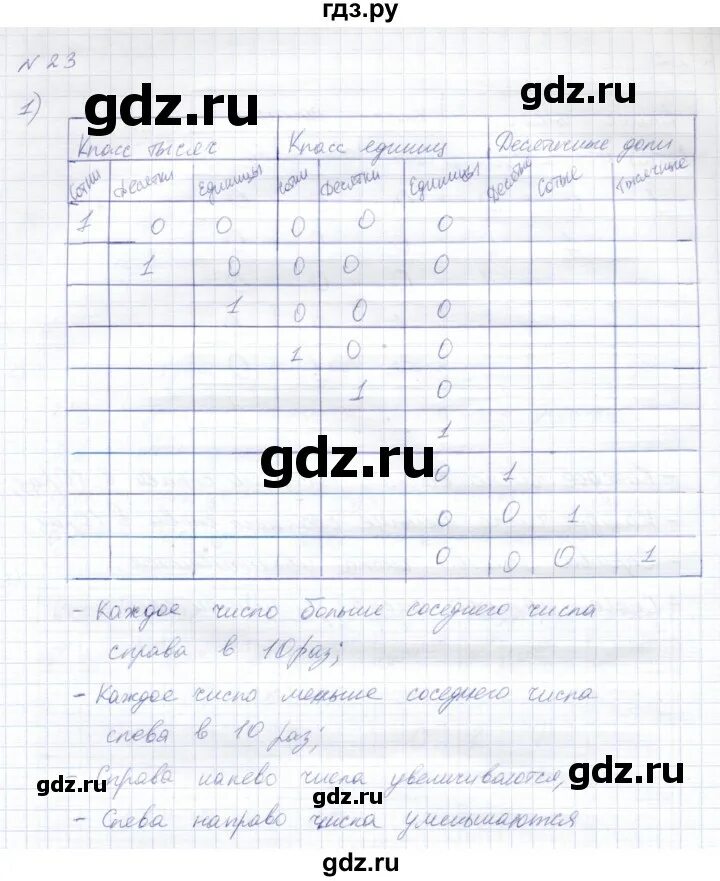 гдз.ру
N 23
gdz.ru
gdz.ru
1)
Класс тысяч Класс единиц Десятичные доли
Сотни Десятки Единицы Сотни Десятки Единицы Десятые Сотые Тысячные
1 0 0 0 0 0
1 0 0 0 0
1 0 0 0
1 0 0
1 0
1
gdz.ru
0 1
0 0 1
0 0 0 1
- Каждое число больше соседнего числа
справа в 10 раз;
- Каждое число меньше соседнего числа
слева в 10 раз;
- Справа налево числа увеличиваются,
gdz.ru
gdz.ru
gdz.ru
- Слева направо числа уменьшаются
gdz.ru